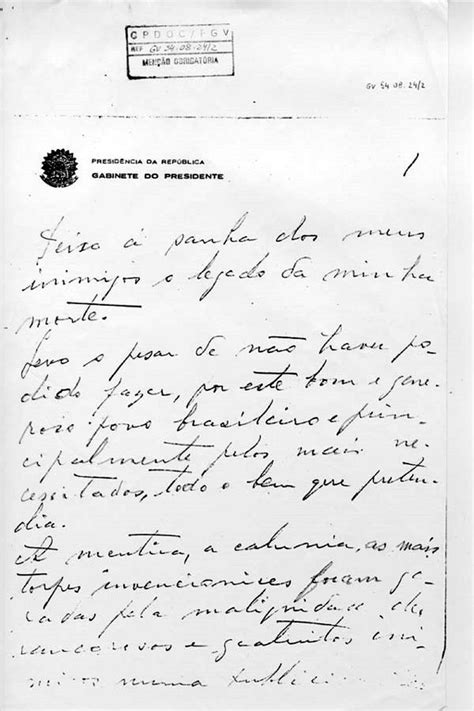 CPDOC/FGV
REF GV 54.08.24/2
MENÇÃO OBRIGATÓRIA
GV 54.08.24/2
PRESIDÊNCIA DA REPÚBLICA
GABINETE DO PRESIDENTE
1
Deixo á sanha dos meus
inimigos o legado da minha
morte.
Levo o pesar de não haver po-
dido fazer, por este bom e gene-
roso povo brasileiro e prin-
cipalmente pelos mais ne-
cessitados, todo o bem que preten-
dia.
A mentira, a calunia, as mais
torpes invencionices foram ge-
radas pela malignidade de
rancorosos e gratuitos ini-
migos numa